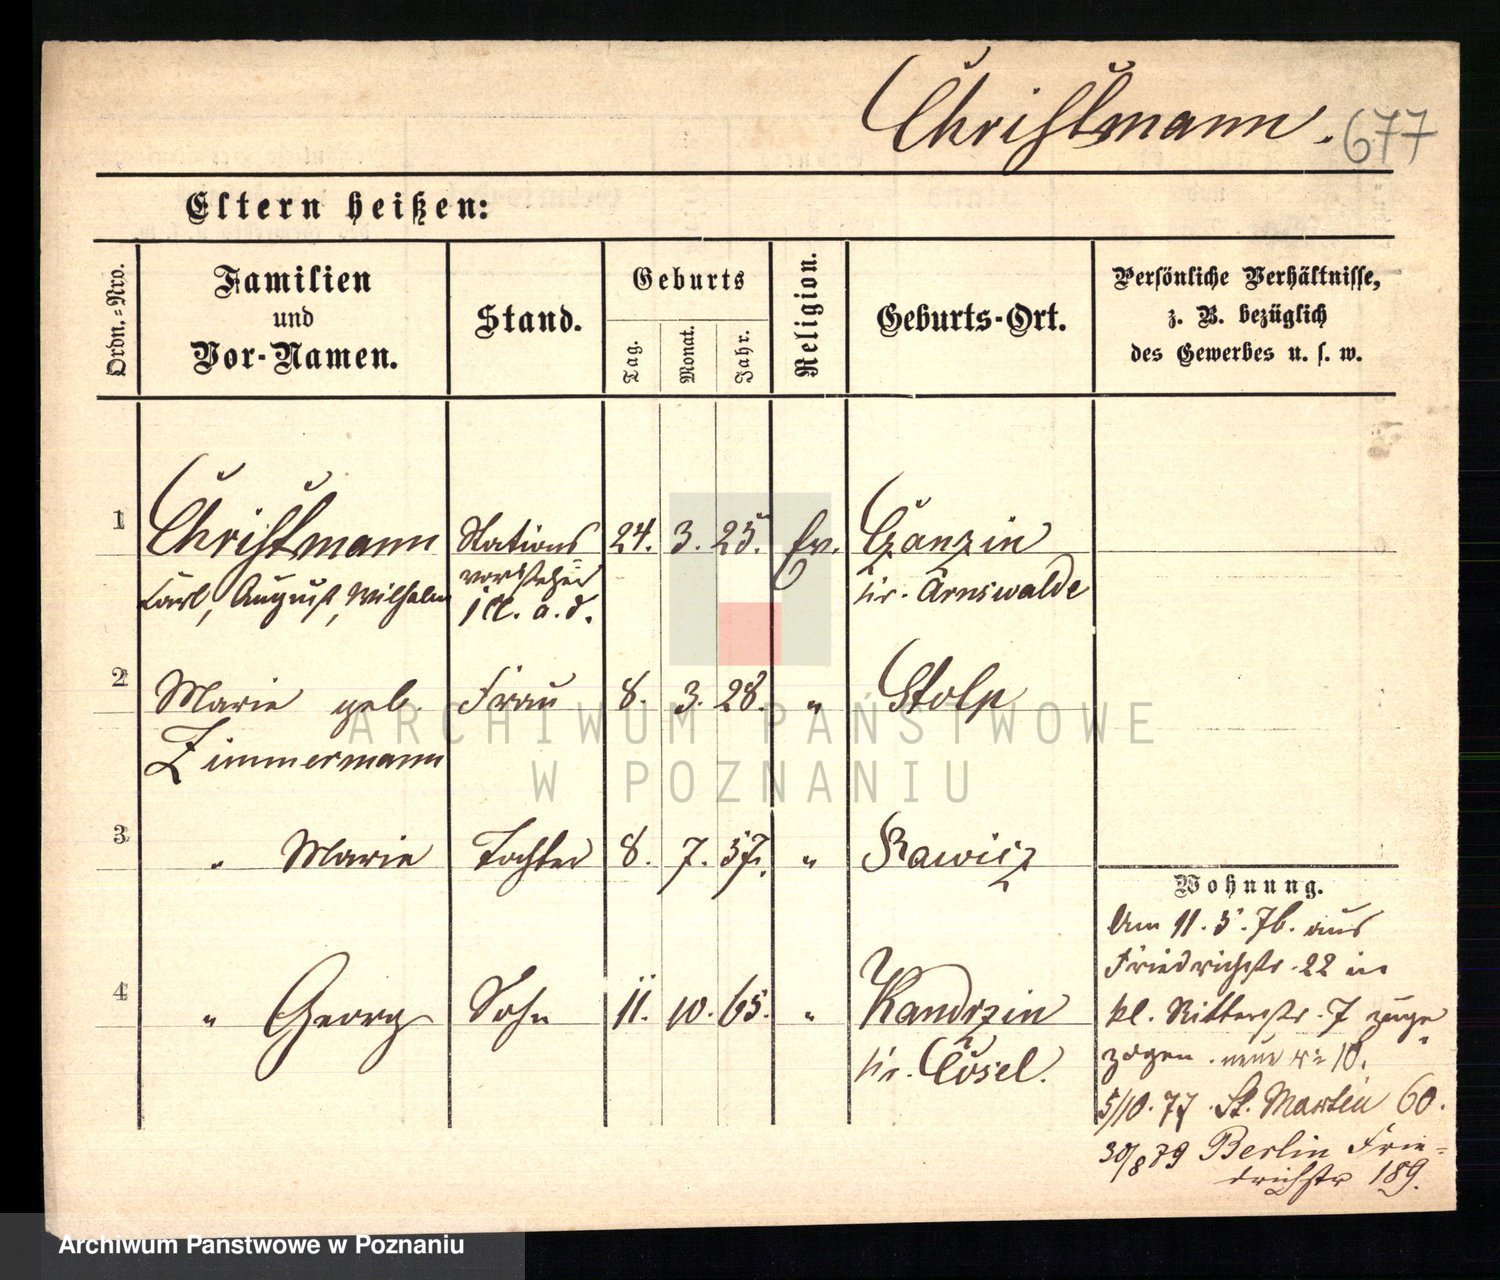 Christmann. 677
Eltern heißen:
Ordn.-Nro.
Familien
und
Vor-Namen.
Stand.
Geburts
Tag.
Monat.
Jahr.
Religion.
Geburts-Ort.
Persönliche Verhältnisse,
z. B. bezüglich
des Gewerbes u. s. w.
1 Christmann Stations 24. 3. 25. Ev.
Carl, August, Wilhelm vorsteher Kr. Arnswalde
a. d.
2 Marie geb. Frau 8. 3. 28. " Stolp
Zimmermann
3 " Marie Tochter 8. 7. 57. " Rawicz
4 " Georg Sohn 11. 10. 65. " Kandrzin
Kr. Cosel.
Wohnung.
Am 11. 5. 76. aus
Friedrichstr. 22 in
kl. Ritterstr. 7 zuge
zogen. neue No 10.
5/10. 77. St. Martin 60.
30/8 79 Berlin Frie-
drichstr 189.
ARCHIWUM PAŃSTWOWE
W POZNANIU
Archiwum Państwowe w Poznaniu